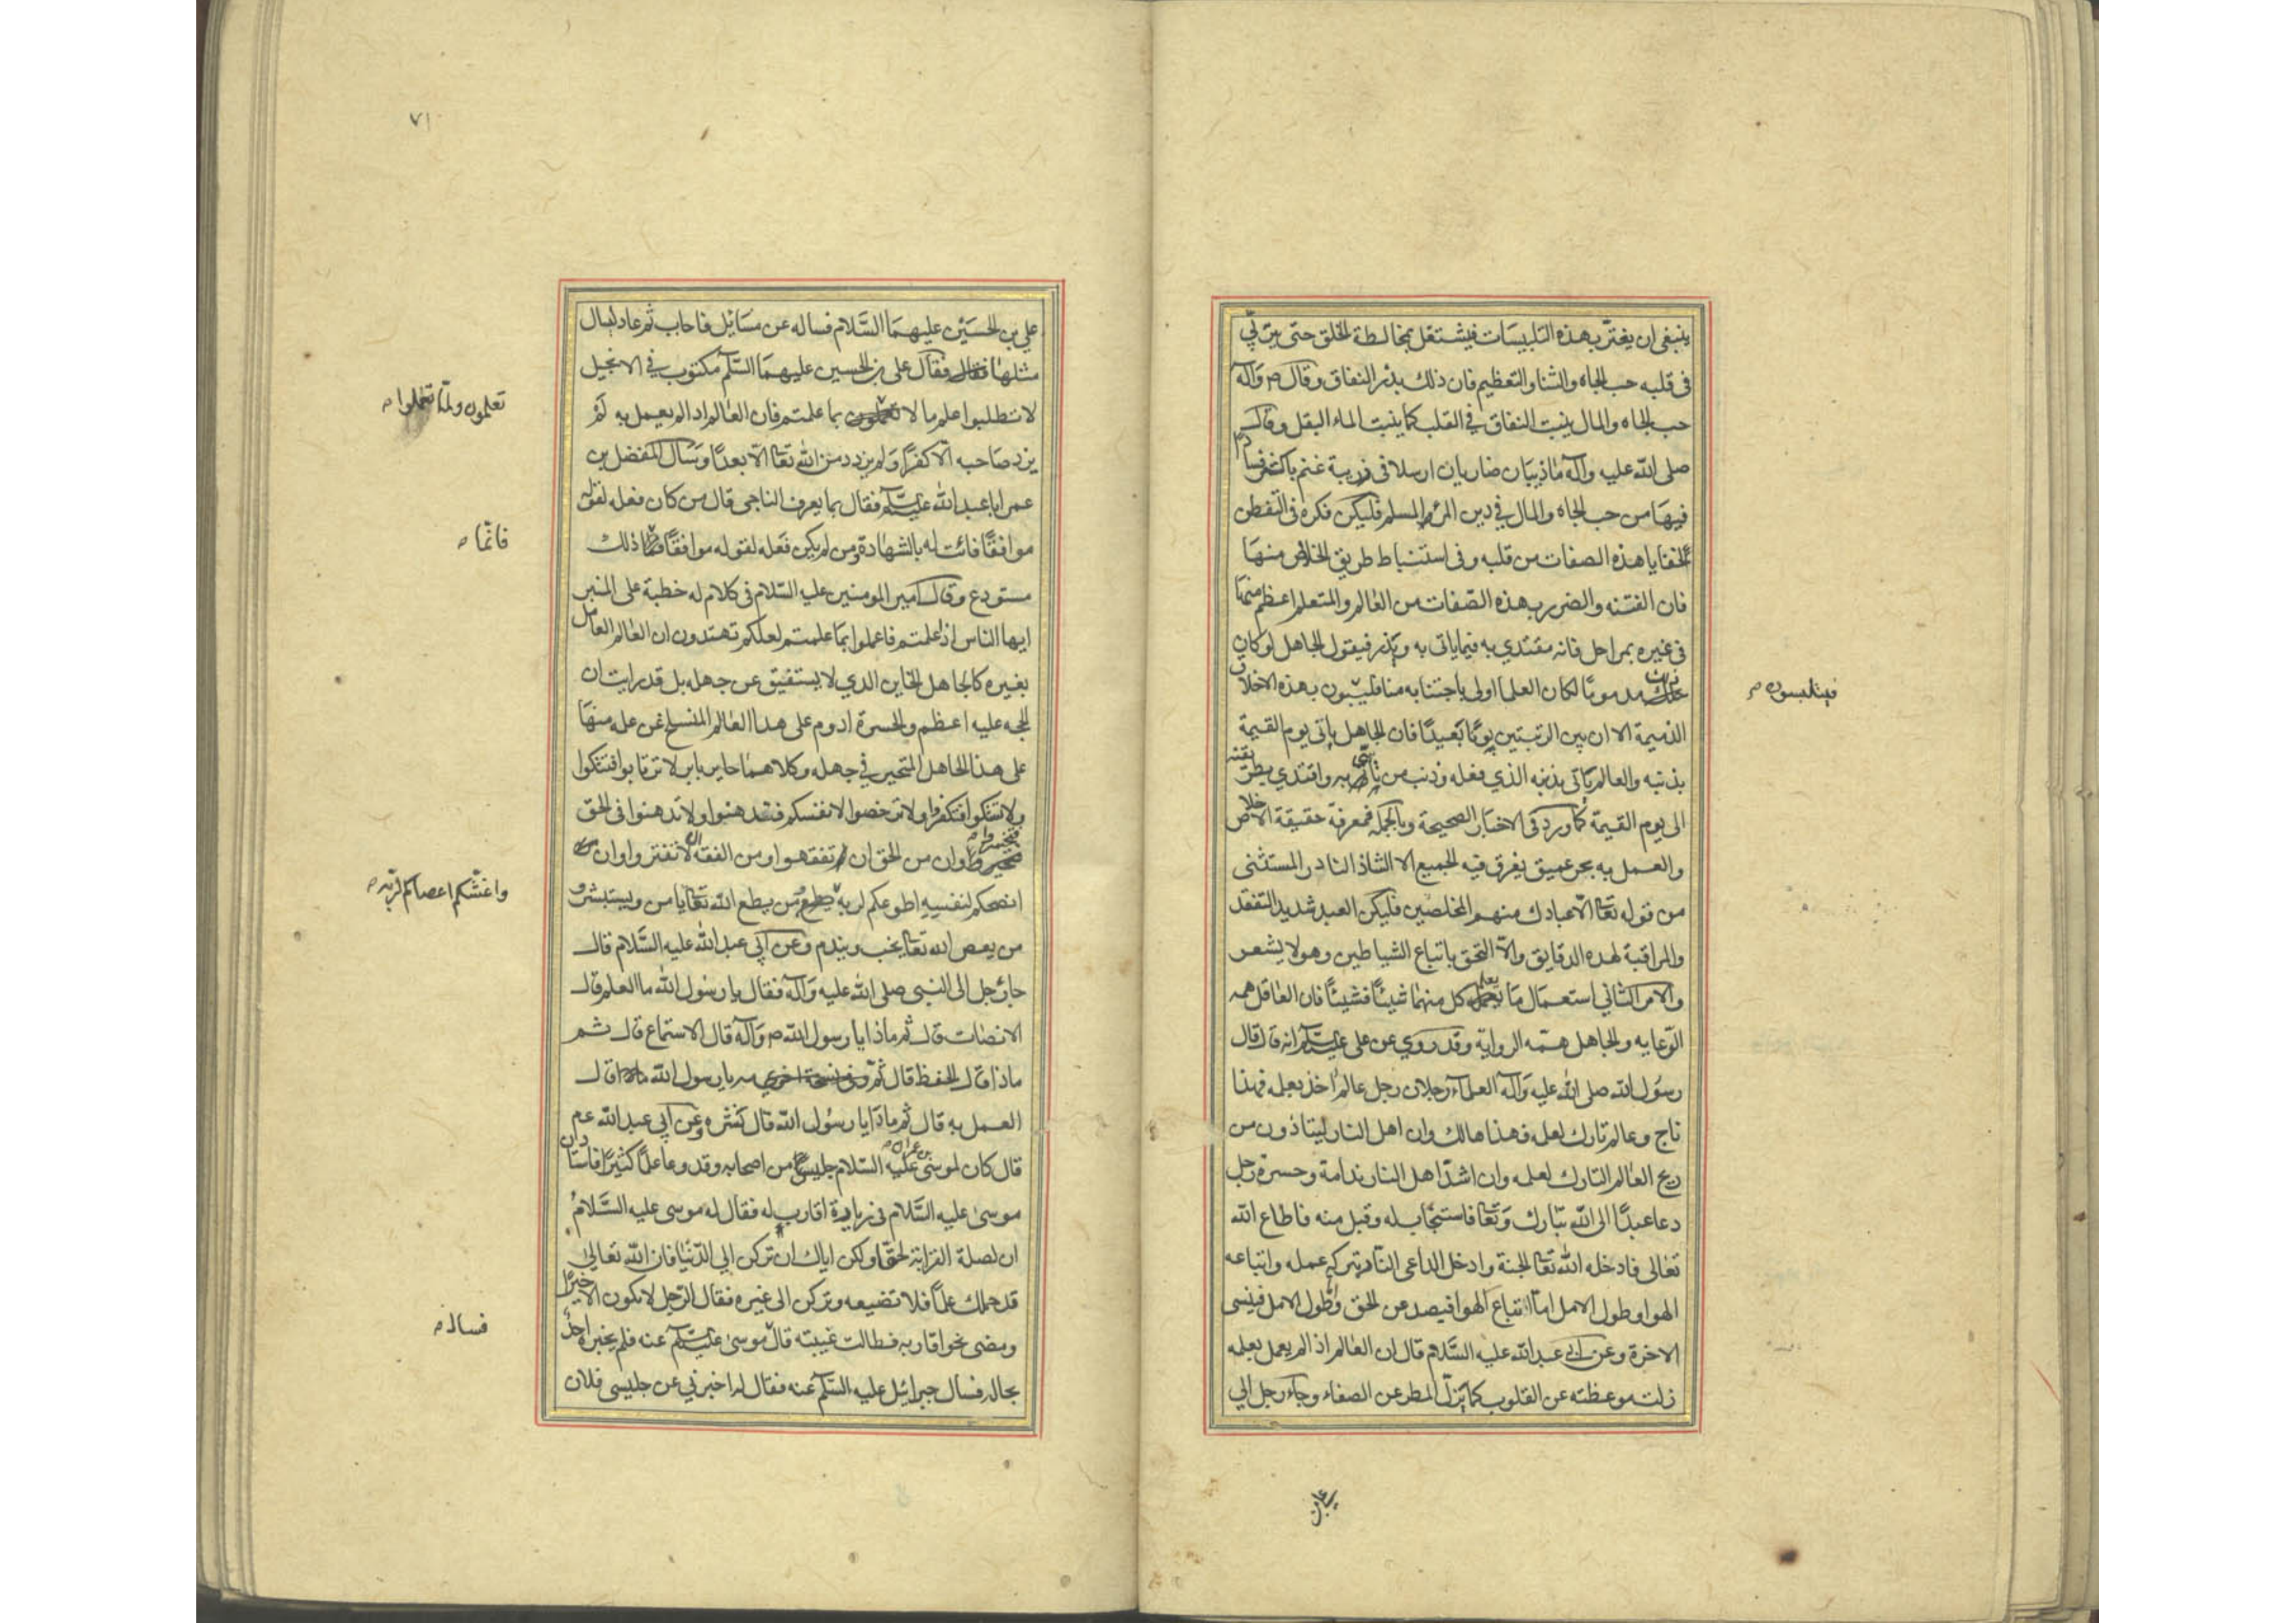 ينبغى ان يغترّ بهذه التلبيسات فيشتغل بمخالطة الخلق حتى يتربّي
فى قلبه حب الجاه والثنا والتعظيم فان ذلك بذر النفاق وقال ص وآله
حب الجاه والمال ينبت النفاق فى القلب كما ينبت الماء البقل وقال
صلى الله عليه وآله ماذيبان ضاريان ارسلا فى زريبة غنم باكثر فسادا
فيها من حب الجاه والمال في دين المرء المسلم فليكن فكره فى التفطن
لخفايا هذه الصفات من قلبه وفى استنباط طريق الخلاص منها
فان الفتنه والضرر بهذه الصّفات من العالم والمتعلم اعظم منها
فى غيره بمراحل فانه مقتدي به فيما ياتى به ويذر فيقول الجاهل لو كان
ذلك مذموما لكان العلما اولى باجتنابه منا فيتلبسون بهذه الاخلاق
فيتلبسون ص
الذميمة الا ان بين الرتبتين بونا بعيدًا فان الجاهل ياتى يوم القيمة
بذنبه والعالم ياتى بذنبه الذي فعله وذنب من تاسّى به واقتدي بطريقته
الى يوم القيمة كما ورد فى الاخبار الصحيحة وبالجملة فمعرفة حقيقة الاخلاص
والعمل به بحر عميق يغرق فيه الجميع الا الشاذ النادر المستثنى
من قوله تعا الّا عبادك منهم المخلصين فليكن العبد شديد التفقد
والمراقبة لهذه الدقايق والّا التحق باتباع الشياطين وهو لا يشعر
والامر الثاني استعمال ما يعلمه كل منهما شيئًا فشيئًا فان العاقل همه
الرّعايه والجاهل همّه الرواية وقد روي عن على عليه السّلم انه قال قال
رسول الله صلى الله عليه وآله العلماء رجلان رجل عالم اخذ بعلمه فهذا
ناج وعالم تارك لعلمه فهذا هالك وان اهل النار ليتاذون من
ريح العالم التارك لعلمه وان اشدّ اهل النار ندامة وحسرة رجل
دعا عبدًا الى الله تبارك وتعا فاستجاب له وقبل منه فاطاع الله
تعالى فادخله الله تعا الجنة وادخل الداعى النار بتركه عمله واتباعه
الهوا وطول الامل امّا اتباع الهوا فيصد عن الحق وطول الامل فينسى
الاخرة وعن ابي عبدالله عليه السّلام قال ان العالم اذا لم يعمل بعلمه
زلت موعظته عن القلوب كما يزلّ المطر عن الصفاء وجاء رجل الي
على بن
٧١
علي بن الحسين عليهما السّلام فساله عن مسايل فاجاب ثم عاد ليسال
مثلها فقال على بن الحسين عليهما السّلم مكتوب في الانجيل
لا تطلبوا علم ما لا تعملون بما علمتم فان العالم اذا لم يعمل به لم
تعلمون ولمّا تعملوا ص
يزد صاحبه الّا كفرًا ولم يزدد من الله تعا الّا بعدًا وسال المفضل بن
عمر ابا عبدالله عليه السّلم فقال بما يعرف الناجى قال من كان فعله لقوله
موافقًا فاثبت له بالشهادة ومن لم يكن فعله لقوله موافقًا فانما ذلك
فانّما ص
مستودع وقال امير المومنين عليه السّلام فى كلام له خطبة على المنبر
ايها الناس اذا علمتم فاعملوا بما علمتم لعلكم تهتدون ان العالم العامل
بغيره كالجاهل الحاير الذي لا يستفيق عن جهله بل قد رايت ان
الحجه عليه اعظم والحسرة ادوم على هذا العالم المنسلخ عن علمه منها
على هذا الجاهل المتحير في جهله وكلاهما حاير باير لا ترتابوا فتشكوا
ولا تشكوا فتكفروا ولا ترخصوا لانفسكم فتدهنوا ولا تدهنوا فى الحق
فتخسروا وان من الحق ان تفقهوا ومن الفقه ان لا تغتروا وان
انصحكم لنفسه اطوعكم لربه ومن يطع الله تعا يامن ويستبشر و
واغشّكم اعصاكم لربّه ص
من يعص الله تعا يخب ويندم وعن ابي عبدالله عليه السّلام قال
جاء رجل الى النبى صلى الله عليه وآله فقال يا رسول الله ما العلم قال
الانصات قال ثم ماذا يا رسول الله ص وآله قال الاستماع قال ثم
ماذا قال الحفظ قال ثم مه يا رسول الله قال
العمل به قال ثم ماذا يا رسول الله قال نشره وعن ابي عبد الله عم
قال كان لموسى بن عمران عليه السّلام جليس من اصحابه وقد وعا علمًا كثيرًا فاستاذن
موسى عليه السّلام فى زيارة اقارب له فقال له موسى عليه السّلام
ان لصلة القرابة لحقّا ولكن اياك ان تركن الي الدّنيا فان الله تعالى
قد حملك علمًا فلا تضيعه وتركن الى غيره فقال الرّجل لا يكون الا خيرًا
ومضى نحو اقاربه فطالت غيبته قال موسى عليه السّلم عنه فلم يخبره احد
فسال ص
بحاله فسال جبرائيل عليه السّلم عنه فقال له اخبرني عن جليسى فلان